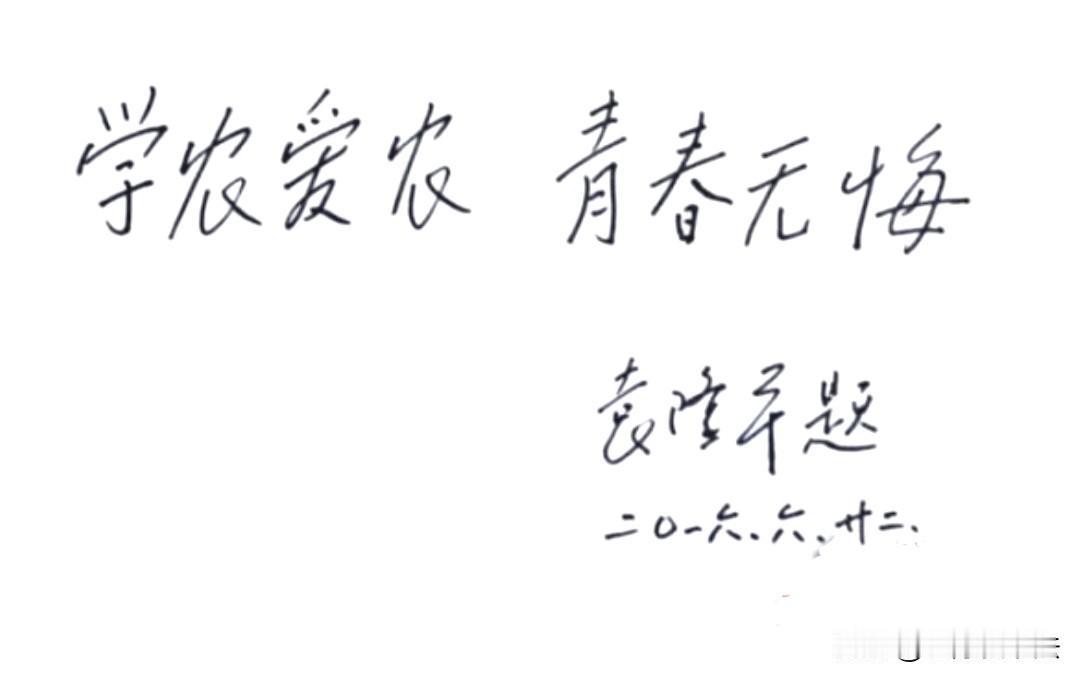 学农爱农 青春无悔
袁隆平题
二〇一六、六、廿二、